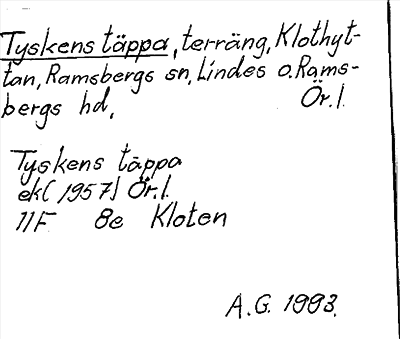 Tyskens täppa, terräng, Klothyt-
tan, Ramsbergs sn, Lindes o. Rams-
bergs hd, Ör. l.
Tyskens täppa
ek (1957) Ör. l.
11F 8e Kloten
A.G. 1993.